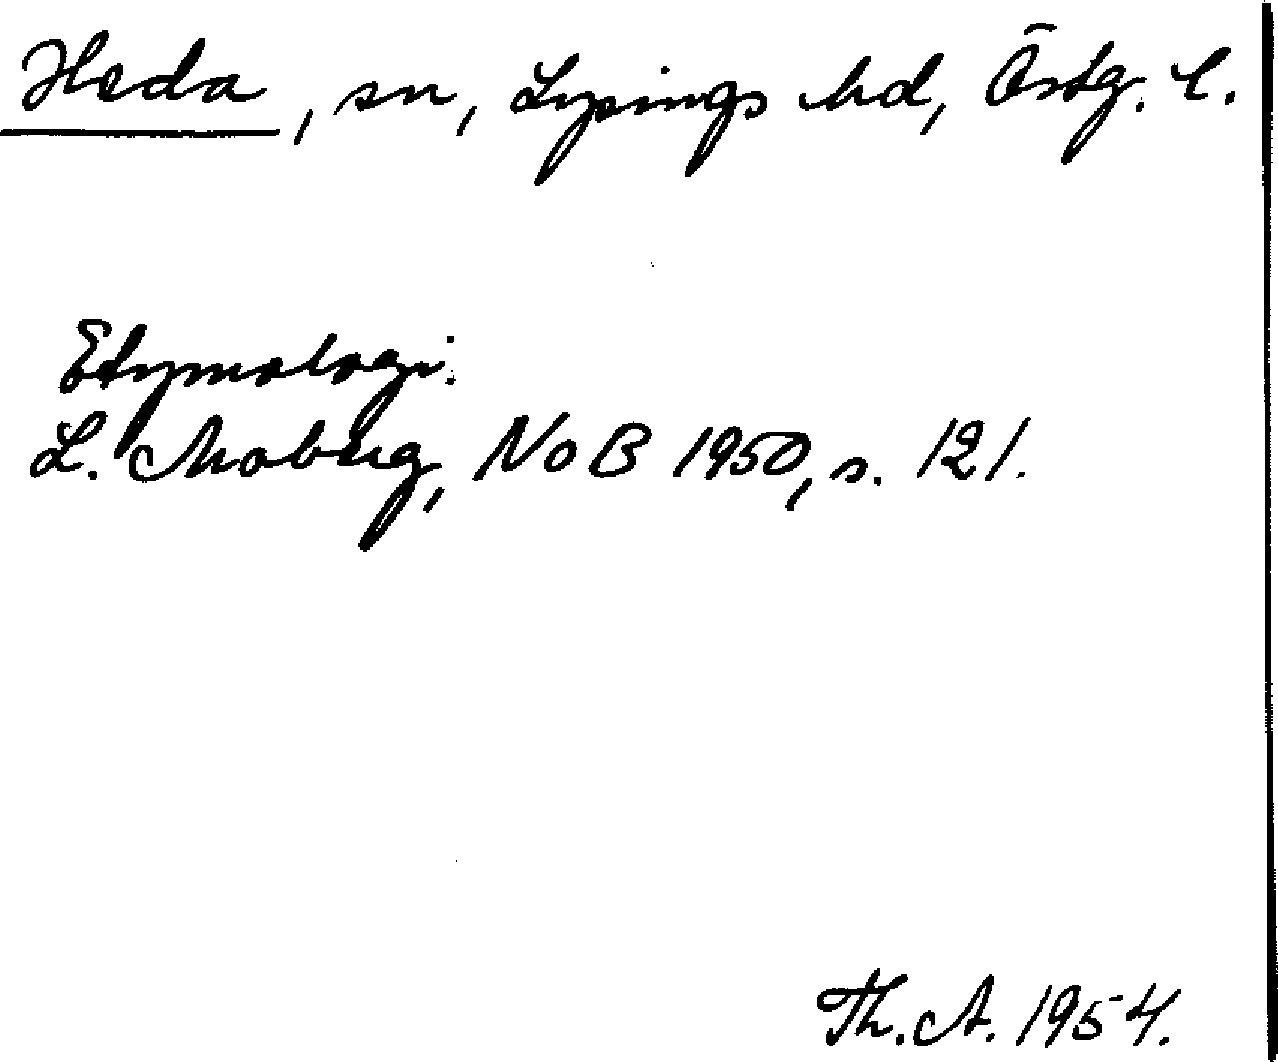 Heda, sn, Lysings hd, Östg. l.
Etymologi:
L. Moberg, NoB 1950, s. 121.
Th. A. 1954.